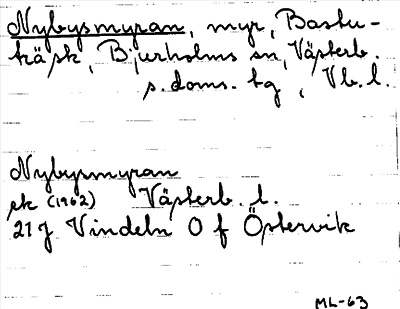 Nybysmyran, myr, Bastu-
träsk, Bjurholms sn, Västerb.
s. doms. tg, Vb. l.
Nybysmyran
ek (1962) Västerb. l.
21 J Vindeln 0 f Östervik
ML-63